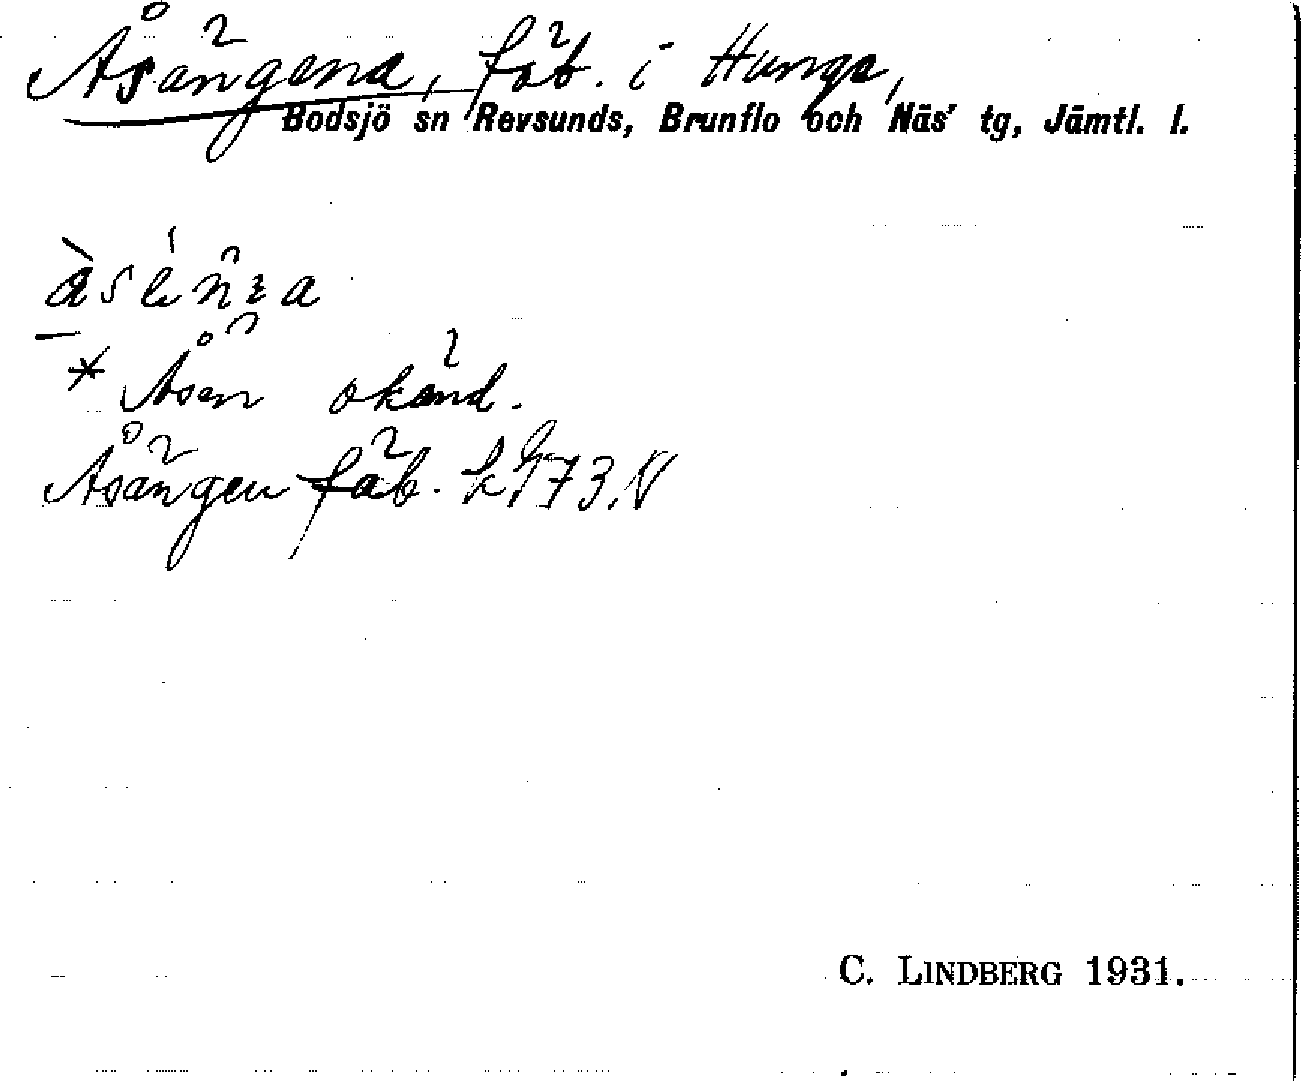 Åsängena, fäb. i Hunge,
Bodsjö sn Revsunds, Brunflo och Näs' tg, Jämtl. l.
* Åsen okänd.
Åsängen fäb. 73.V
C. LINDBERG 1931.